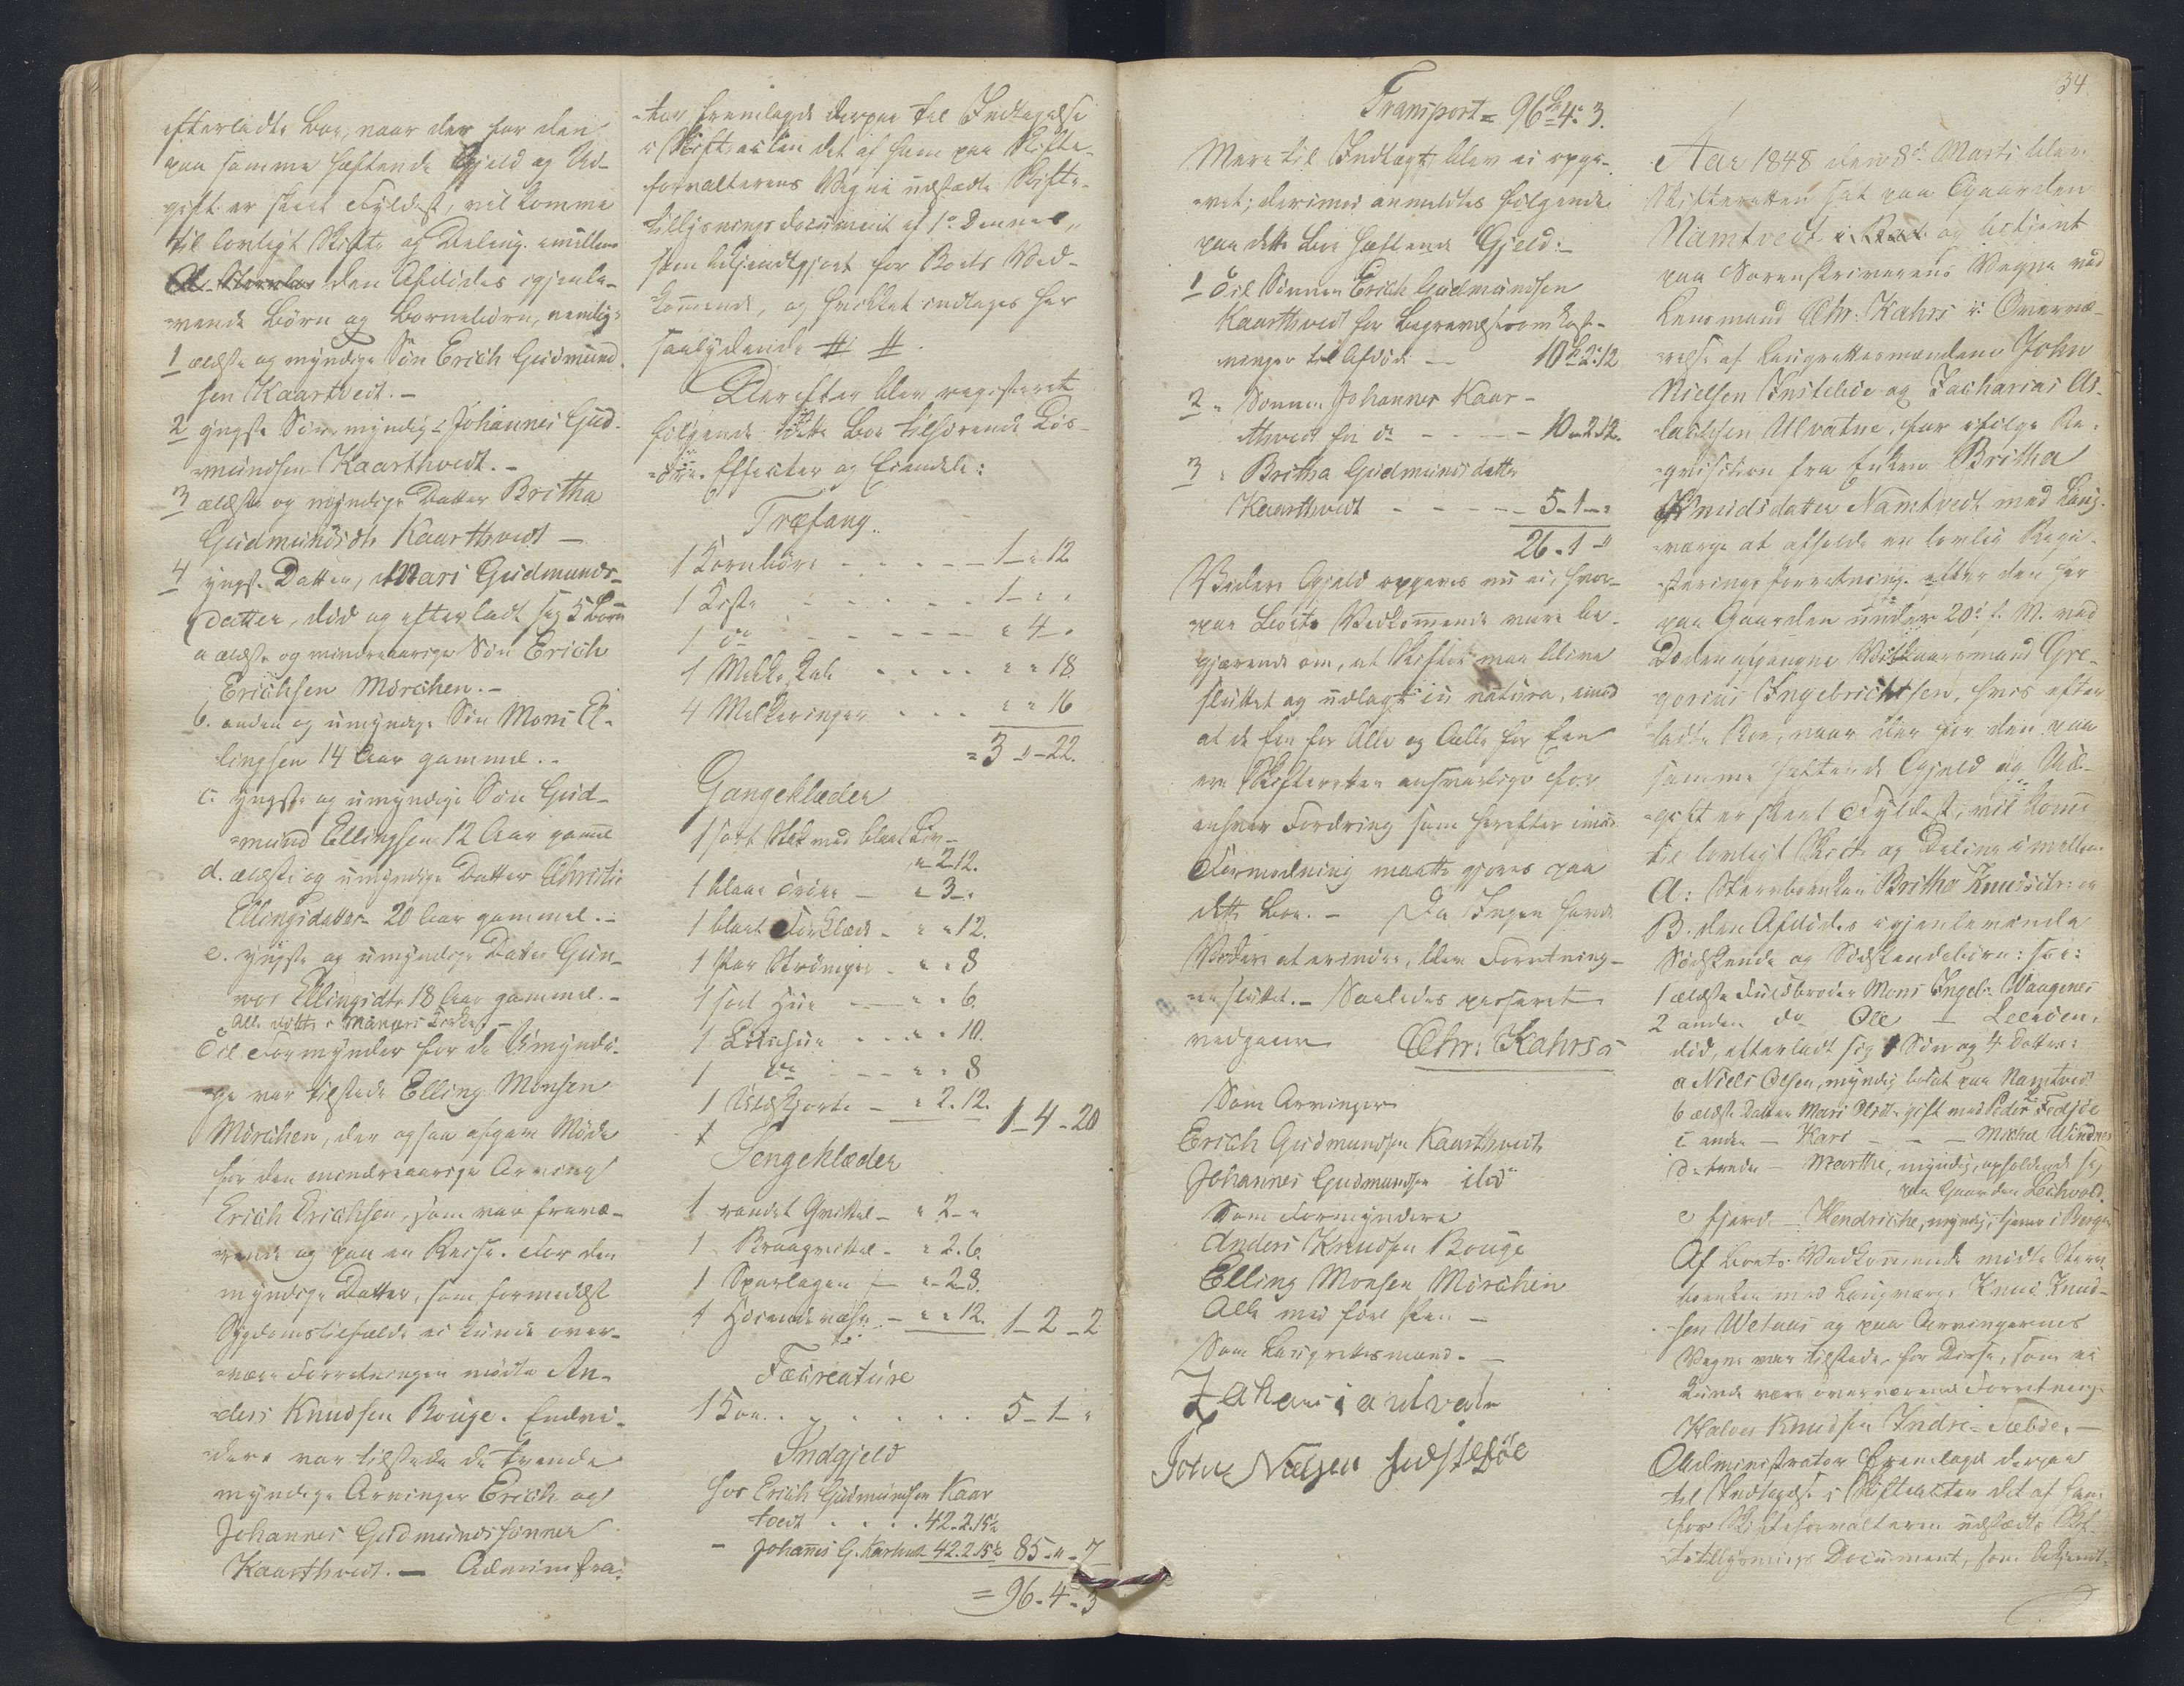 efterladte Boe, naar der for den
paa samme heftende Gjeld og Ud-
gift er skeet Fyldest, vil komme
til lovligt Skifte og Deling imellem
den Afdødes igjenle-
vende Børn og Børnebørn, nemlig:
1 ældste og myndige Søn Erich Gudmund
sen Kaartvedt. -
2 yngste Søn, myndig - Johannes Gud-
mundsen Kaarthvedt. -
3 ældste og myndige Datter Britha
Gudmundsdtr Kaarthvedt -
4 yngste Datter, Mari Gudmunds-
datter, død og efterladt sig 5 Børn
a ældste og mindreaarige Søn Erich
Erichsen Mörchen. -
b. anden og umyndige Søn Mons El-
lingsen 14 Aar gammel. -
c. yngste og umyndige Søn Gud-
mund Ellingsen 12 Aar gamel
d. ældste og umyndige Datter Christi
Ellingsdatter 20 Aar gammel. -
e. yngste og umyndige Datter Gun-
vor Ellingsdtr 18 Aar gammel. -
Alle døbte i Mangers Kirke. -
Til Formynder for de Umyndi-
ge var tilstede Elling Monsen
Mörchen, der ogsaa afgav Møde
for den mindreaarige Arving
Erich Erichsen, som var fravæ-
rende og paa en Reise. For den
myndige Datter, som formedelst
Sygdomstilfælde ei kunde over-
være Forretningen mødte An-
ders Knudsen Bouge. Endvi-
dere var tilstede de tvende
myndige Arvinger Erich og
Johannes Gudmundssønner
Kaarthvedt. - Administra-
tor fremlagde derpaa til Indtagelse
i Skifteacten det af ham paa Skifte-
forvalterens Vegne udstædte Skifte-
tillysningsdocument af 1ste Dennes,
som bekjendtgjort for Boets Ved-
kommende, og hvilket indtages her
saalydende # #.
Derefter blev registeret
følgende dette Boe tilhørende Løs-
øre Effecter og Eiendele:
Træfang.
1 Kornbøre - - - 1 - " 12
1 Kiste - - - 1 - " "
1 do - - - " 4 "
1 Melke - - - " " 18
4 Melkeringer - - - " " 16
= 3 " - 22.
Gangeklæder
1 sort Stak med blaat Liv -
" - 2 12.
1 blaae Trøie - " 3 - "
1 blaat Forklæde - " " 12.
1 Par Strømper - " " 8
1 sort Hue - " " 6
1 - " " 10.
1 do - - " " 8
1 Uldskjorte - " 2. 12. 1 - 4 - 20
Sengeklæder
1 randet Qvittel - " 2 - "
1 Qvittel - " 2. 6.
1 Sparlagen - " - 2 8.
1 - " " 12. 1 - 2 - 2
Fæcreature
1 Koe . . . . 5 - 1 - "
Indgjeld
hos Erich Gudmundsen Kaar
tvedt . . . . 42 - 2. 15½
- Johannes G. Karhvedt 42. 2. 15½ 85 - " - 7
= 96 - 4 - 3
Transport = 96 - 4 - 3.
Mere til Indtægt blev ei opgi-
vet; derimod anmeldtes følgende
paa dette Boe heftende Gjeld: -
1 Til Sønnen Erich Gudmundsen
Kaarthvedt for Begravelsesomkost-
ninger til Afdøde - - 10 - 2 : 12
2 " Sønnen Johannes Kaar-
thvedt for do - - - 10 - 2 12.
3 " Britha Gudmundsdatter
Kaarthvedt - - - 5 - 1 - "
26 - 1 - "
Videre Gjeld opgaves nu ei, hvor-
paa Boets Vedkommende vare be-
gjærende om, at Skiftet maa blive
sluttet og udlagt in natura, imod
at de Een for Alle og Alle for Een
ere Skifteretten ansvarlige for
enhver Fordring som herefter imod
Formodning maatte gjøres paa
dette Boe. - Da Ingen havde
Videre at erindre, blev Forretning-
en sluttet. - Saaledes passeret
vedgaaer Chr: Kahrss
Som Arvinger
Erich Gudmundsen Kaarthvedt
Johannes Gudmundsen ibid
Som Formyndere
Anders Knudsen Bouge
Elling Monsen Mörchen
Alle med ført Pen -
Som Laugrettesmænd. -
John Nielsen
34
Aar 1848 den 8de Marts blev
Skifteretten sat paa Gaarden
Namtvedt og betjent
paa Sorenskriverens Vegne ved
Lensmand Chr. Kahrs i Overvæ-
relse af Laugrettesmændene John
Nielsen Instebøe og Zacharias As-
lachsen Ulvatne, for ifølge Re-
qvisition fra Enken Britha
Knudsdatter Namtvedt med Laug-
værge at afholde en lovlig Regi-
streringsforretning efter den her
paa Gaarden under 20de f. M. ved
Døden afgangne Vilkaarsmand Gre-
gorius Ingebrichtsen, hvis efter-
ladte Boe, naar der for den paa
samme heftende Gjeld og Ud-
gift er skeet Fyldest, vil komme
til lovligt Skifte og Deling imellem
A: Sterbboenken Britha Knudsdtr: og
B. den Afdødes igjenlevende
Sødskende og Sødskendebørn: som:
1 ældste Fuldbroder Mons Ingebr. Waagenes
2 anden do Ole -
død, efterladt sig 1 Søn og 4 Døttre:
a Niels Olsen, myndig bosat paa Namtvedt
b ældste Datter Mari Olsdtr gift med Peder Fedsøe
c anden - Kari - - - Michel Windnes
d tredie - Marthe, myndig, opholdende sig
paa Gaarden
e fjerde - Hendriche, myndig, tjener i Bergen
Af Boets Vedkommende mødte Sterv-
boenken med Laugværge Knud Knud-
sen Wetaas og paa Arvingernes
Vegne var tilstede for Disse, som ei
kunde være overværende Forretningen
Halver Knudsen Indre-Sæbøe. -
Administrator fremlagde derpaa
til Indtagelse i Skifteacten det af ham
for Skifteforvalteren udstædte Skif-
tetillysnings Document, som bekjendt-